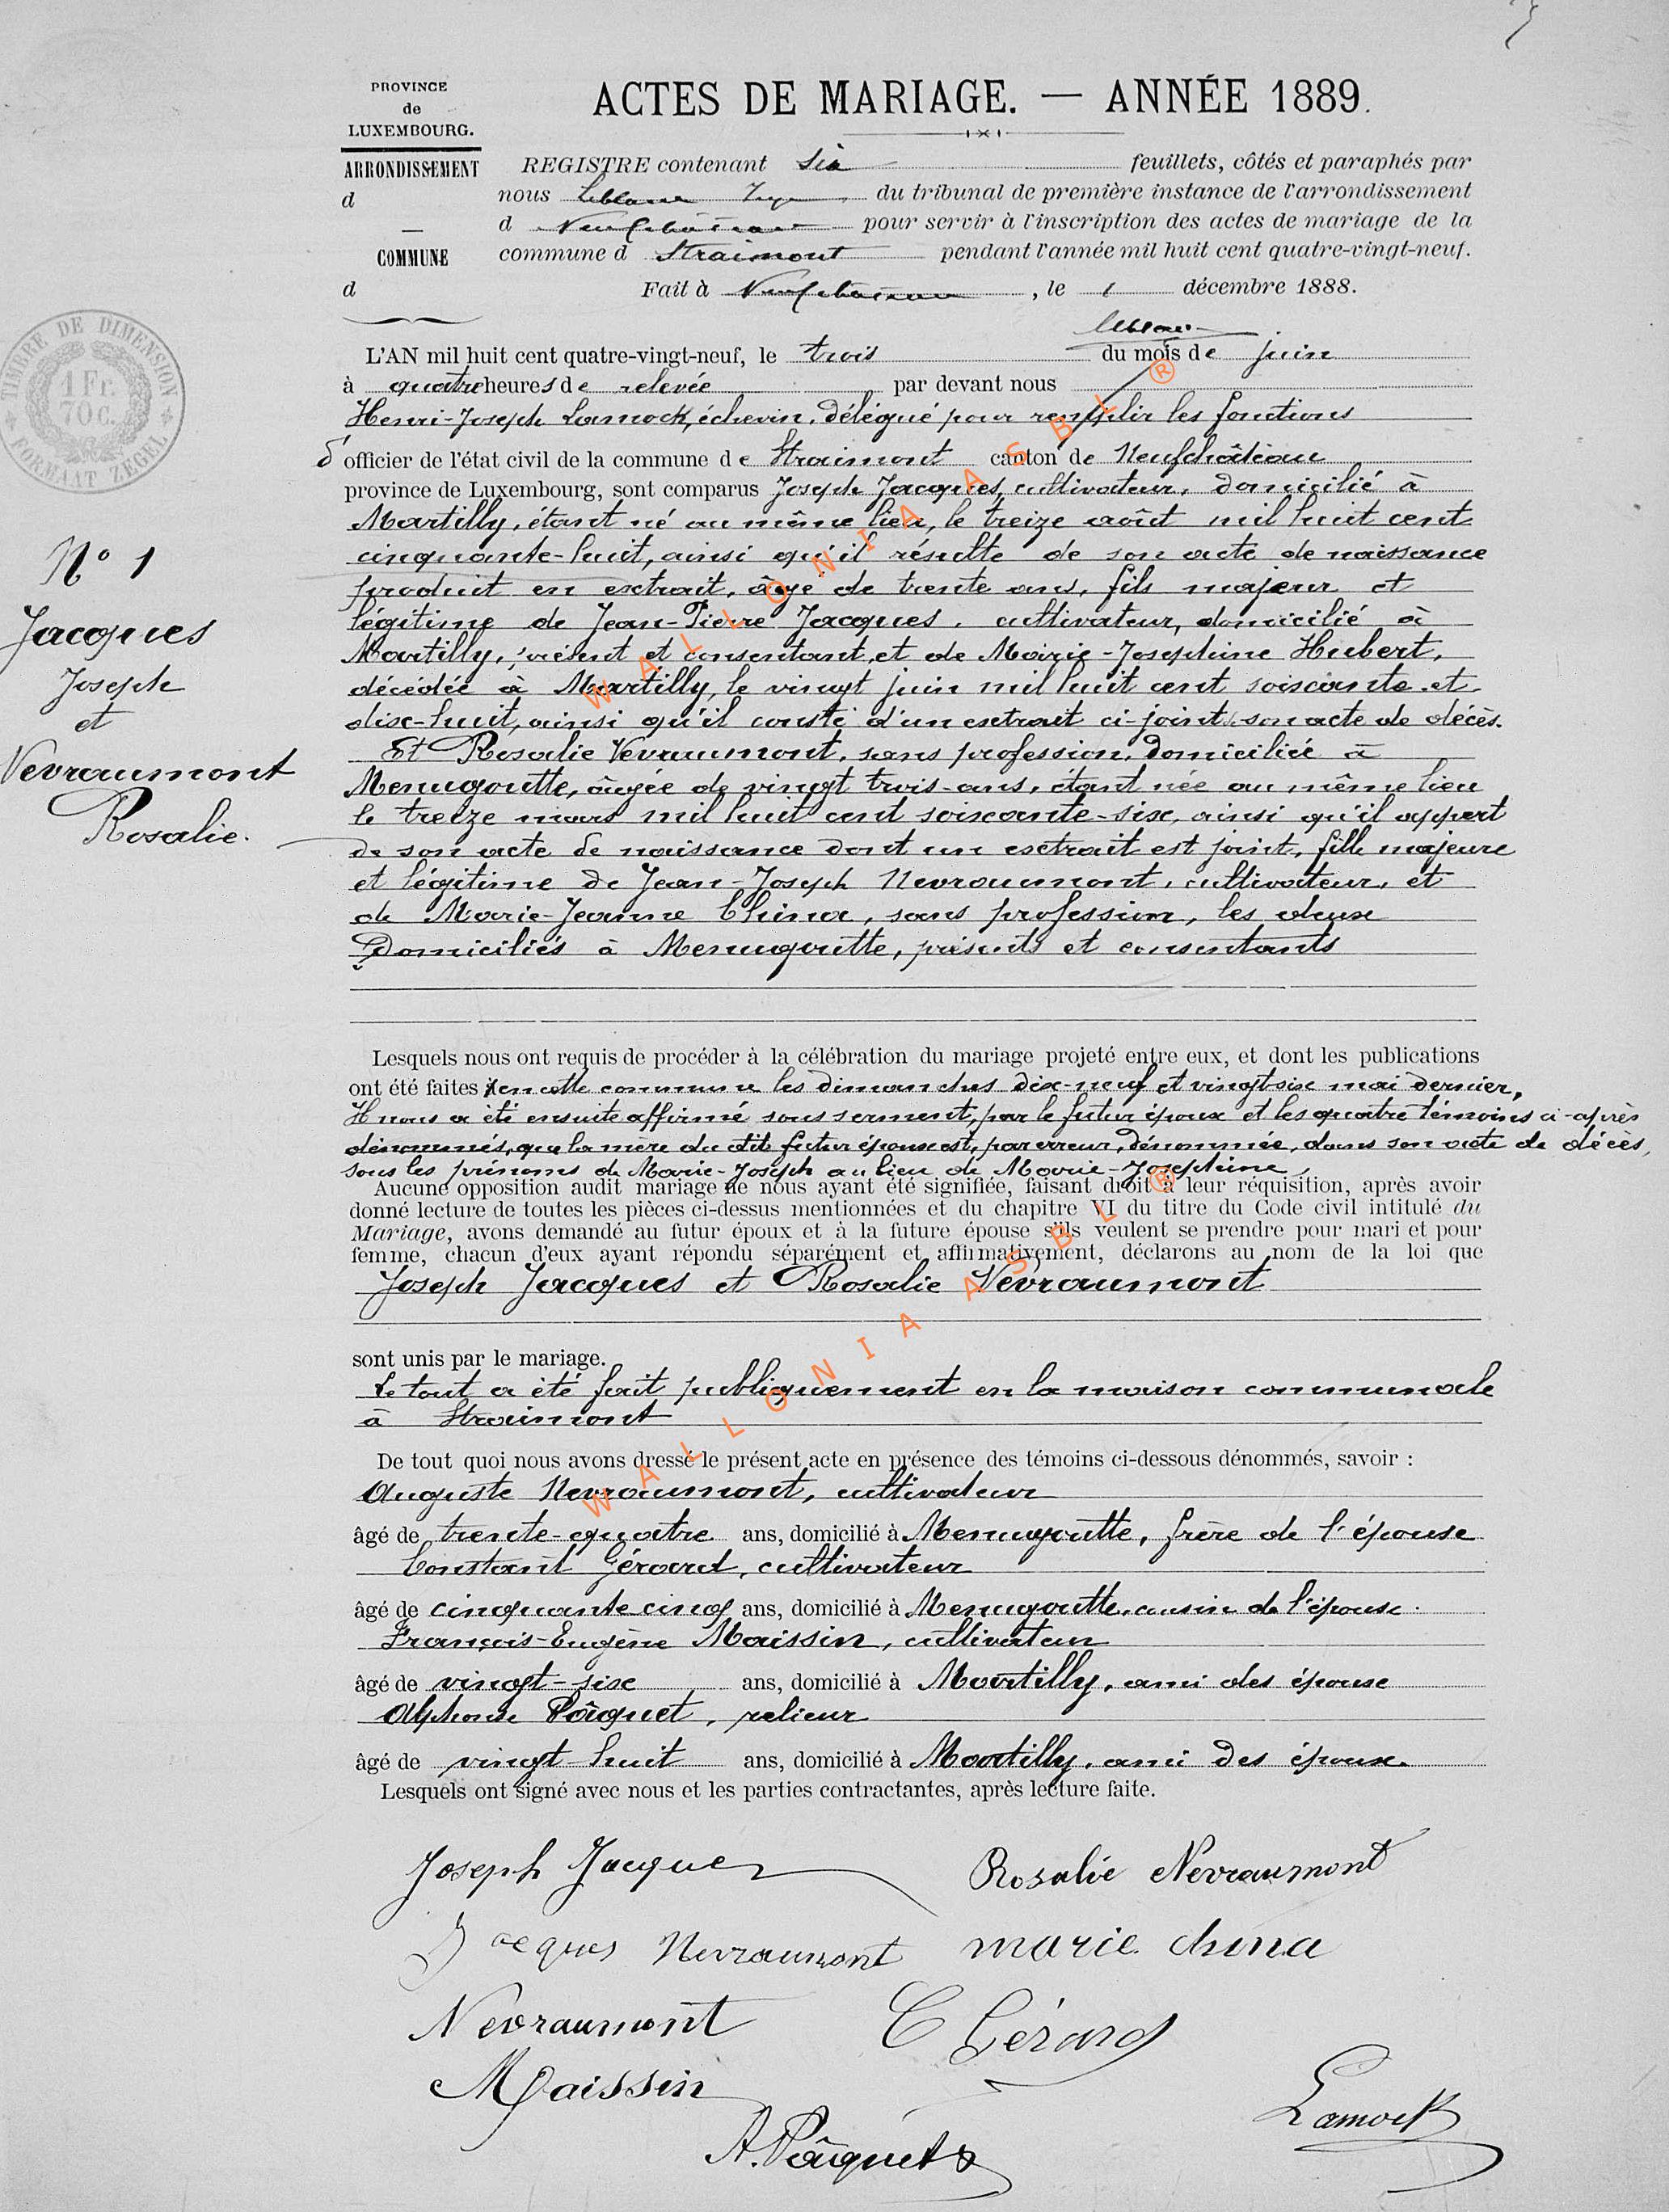 PROVINCE
de
LUXEMBOURG.
ARRONDISSEMENT
d
COMMUNE
d
ACTES DE MARIAGE. — ANNÉE 1889.
REGISTRE contenant six feuillets, côtés et paraphés par
nous Leblanc Juge du tribunal de première instance de l'arrondissement
d Neufchâteau pour servir à l'inscription des actes de mariage de la
commune d Straimont pendant l'année mil huit cent quatre-vingt-neuf.
Fait à Neufchâteau, le 1 décembre 1888.
Leblanc
TIMBRE DE DIMENSION
1 Fr.
70 c.
FORMAAT ZEGEL
L'AN mil huit cent quatre-vingt-neuf, le trois du mois de juin
à quatre heures de relevée par devant nous
Henri-Joseph Lamock, échevin, délégué pour remplir les fonctions
d'officier de l'état civil de la commune de Straimont canton de Neufchâteau
province de Luxembourg, sont comparus Joseph Jacques, cultivateur, domicilié à
Martilly, étant né au même lieu, le treize août mil huit cent
cinquante-huit, ainsi qu'il résulte de son acte de naissance
produit en extrait, âgé de trente ans, fils majeur et
légitime de Jean-Pierre Jacques, cultivateur, domicilié à
Martilly, présent et consentant, et de Marie-Josephine Hubert,
décédée à Martilly, le vingt juin mil huit cent soixante-et-
dix-huit, ainsi qu'il conste d'un extrait ci-joint son acte de décès.
Et Rosalie Nevraumont, sans profession, domiciliée à
Menugoutte, âgée de vingt trois-ans, étant née au même lieu
le treize mars mil huit cent soixante-six, ainsi qu'il appert
de son acte de naissance dont un extrait est joint, fille majeure
et légitime de Jean-Joseph Nevraumont, cultivateur, et
de Marie-Jeanne China, sans profession, les deux
domiciliés à Menugoutte, présents et consentants
N° 1
Jacques
Joseph
et
Nevraumont
Rosalie.
Lesquels nous ont requis de procéder à la célébration du mariage projeté entre eux, et dont les publications
ont été faites en cette commune les dimanches dix-neuf et vingt-six mai dernier,
Il nous a été ensuite affirmé sous serment, par le futur époux et les quatre témoins ci-après
dénommés, que la mère du dit futur époux est, par erreur, dénommée, dans son acte de décès,
sous les prénoms de Marie-Joseph au lieu de Marie-Josephine,
Aucune opposition audit mariage ne nous ayant été signifiée, faisant droit à leur réquisition, après avoir
donné lecture de toutes les pièces ci-dessus mentionnées et du chapitre VI du titre du Code civil intitulé du
Mariage, avons demandé au futur époux et à la future épouse s'ils veulent se prendre pour mari et pour
femme, chacun d'eux ayant répondu séparément et affirmativement, déclarons au nom de la loi que
Joseph Jacques et Rosalie Nevraumont
sont unis par le mariage.
Le tout a été fait publiquement en la maison communale
à Straimont
De tout quoi nous avons dressé le présent acte en présence des témoins ci-dessous dénommés, savoir :
Auguste Nevraumont, cultivateur
âgé de trente-quatre ans, domicilié à Menugoutte, frère de l'épouse
Constant Gérard, cultivateur
âgé de cinquante cinq ans, domicilié à Menugoutte, cousin de l'épouse.
François-Eugène Maissin, cultivateur
âgé de vingt-six ans, domicilié à Martilly, ami des époux
Alphonse Pâquet, relieur
âgé de vingt-huit ans, domicilié à Martilly, ami des époux.
Lesquels ont signé avec nous et les parties contractantes, après lecture faite.
Joseph Jacques
Rosalie Nevraumont
Jacques Nevraumont
marie china
Nevraumont
C Gérard
Maissin
Lamock
A. Pâquet
WALLONIA ASBL ®
WALLONIA ASBL ®